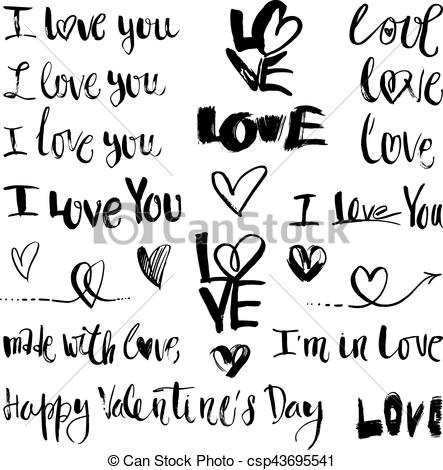 I love you
LO
VE
love
I love you
love
I love you
LOVE
love
I Love You
I Love You
© Can Stock Photo
LO
VE
made with love,
I'm in Love
Happy Valentine's Day
LOVE
© Can Stock Photo - csp43695541